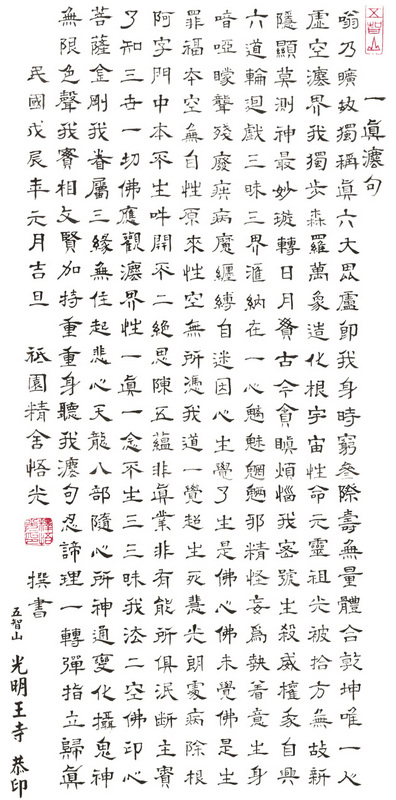 五智山
一真灋句
嗡乃曠劫獨稱真六大毘盧即我身時窮參際壽無量體合乾坤唯一人
虛空灋界我獨步森羅萬象造化根宇宙性命元靈祖光被拾方無故新
隱顯莫測神最妙璇轉日月貫古今貪瞋煩惱我密號生殺威權我自興
六道輪迴戲三昧三界匯納在一心魑魅魍魎邪精怪妄為執著意生身
喑啞矇聾殘廢疾病魔纏縛自迷因心生覺了生是佛心佛未覺佛是生
罪福本空無自性原來性空無所憑我道一覺超生死慧光朗處病除根
阿字門中本不生吽開不二絕思陳五蘊非真業非有能所俱泯斷主賓
了知三世一切佛應觀灋界性一真一念不生三三昧我法二空佛印心
菩薩金剛我眷屬三緣無住起悲心天龍八部隨心所神通變化攝鬼神
無限色聲我實相文賢加持重重身聽我灋句認諦理一轉彈指立歸真
民國戊辰年元月吉旦 祇園精舍悟光 撰書
五智山 光明王寺 恭印